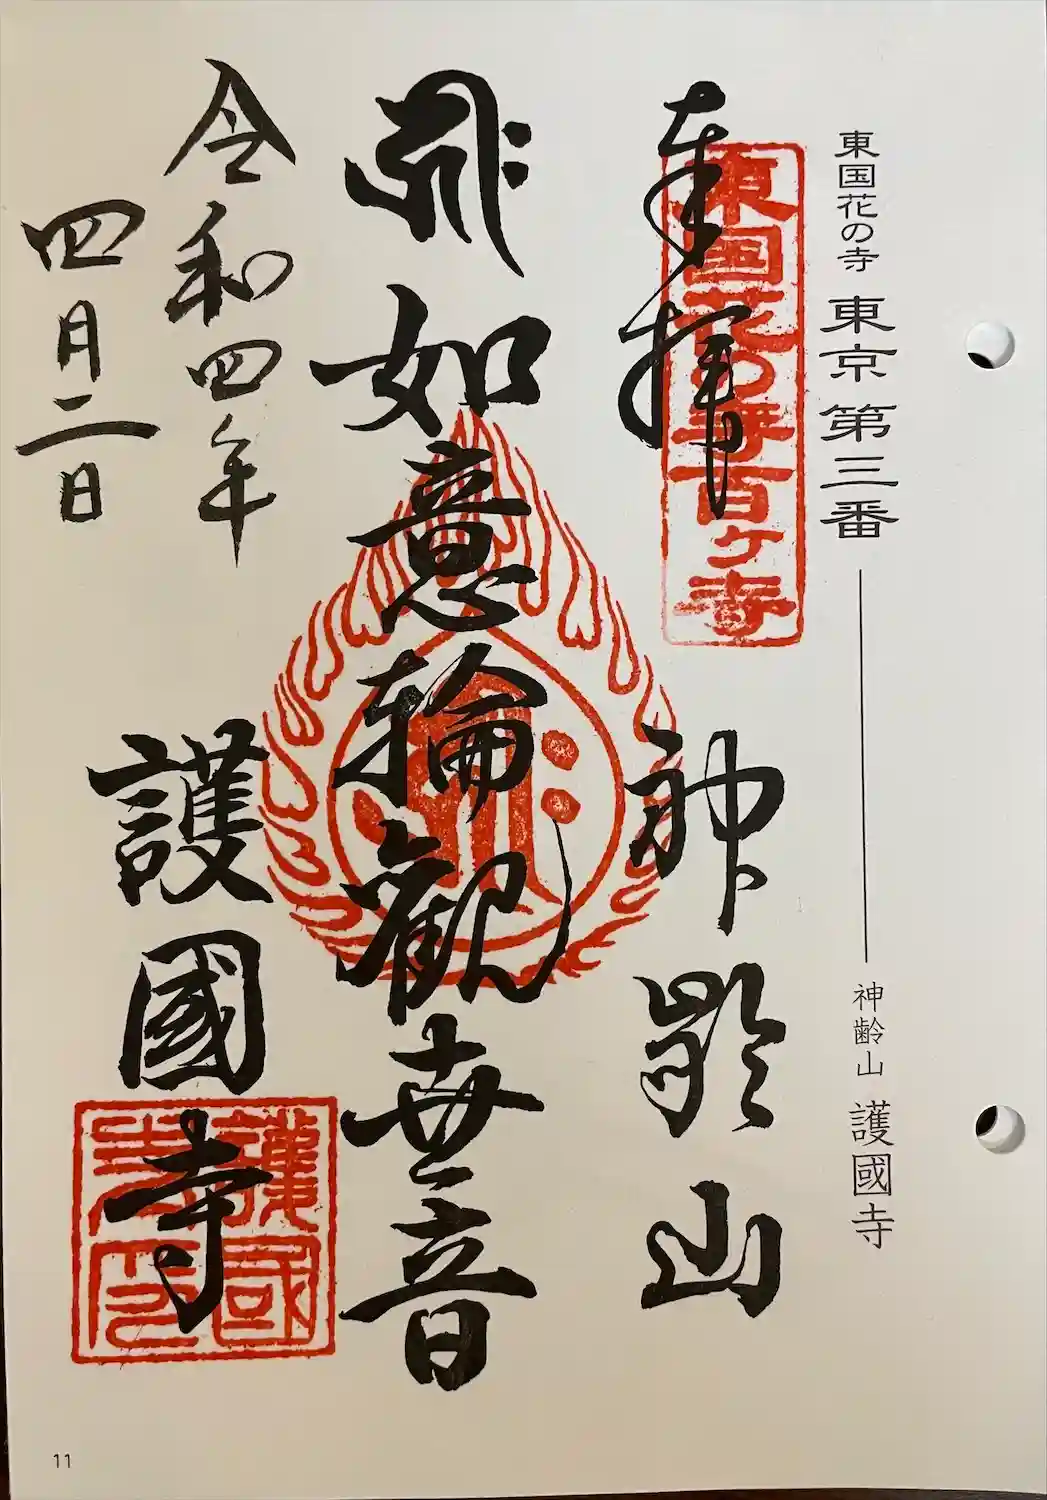 東国花の寺 東京 第三番 神齢山 護國寺
奉拝 神齢山
東国花の寺百ヶ寺
如意輪観世音
令和四年
四月二日
護國寺
護國寺印
11